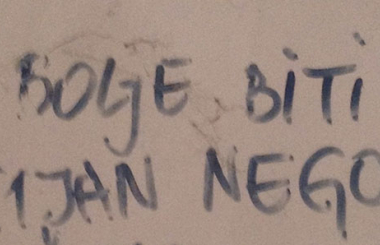 BOLJE BITI
IJAN NEGO